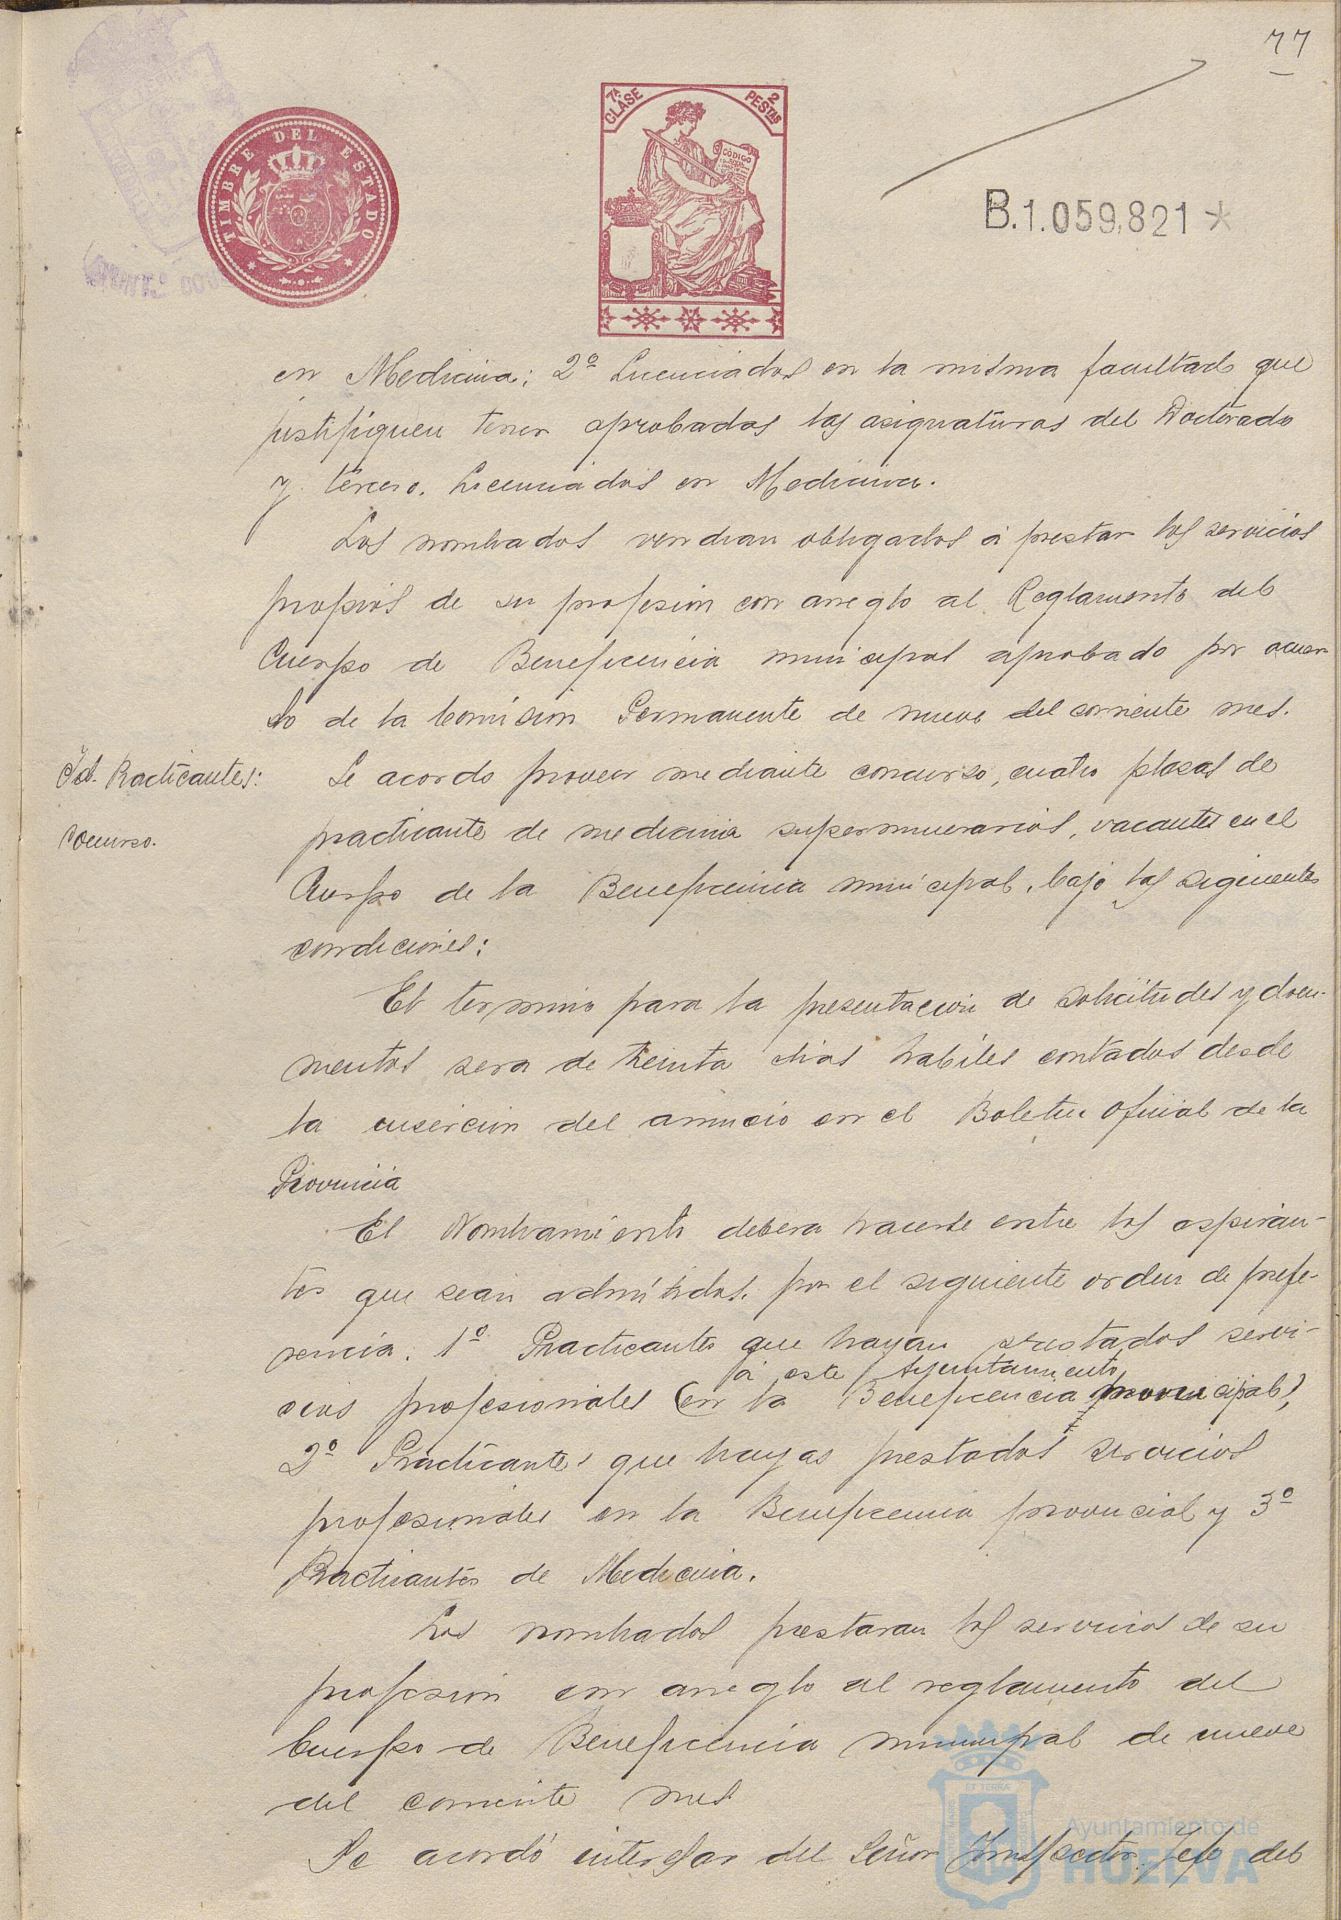 77
TIMBRE DEL ESTADO
7ª CLASE
2 PESTAS
CÓDIGO
B.1.059,821 *
en Medicina; 2º Licenciados en la misma facultad que
justifiquen tener aprobadas las asignaturas del Doctorado
y tercero. Licenciados en Medicina.
Los nombrados vendran obligados á prestar los servicios
propios de su profesion con arreglo al Reglamento del
Cuerpo de Beneficencia municipal aprobado por acuer-
do de la Comision Permanente de nueve del corriente mes.
Id. Practicantes:
Concurso.
Se acordo proveer mediante concurso, cuatro plazas de
practicante de medicina supernumerarios, vacantes en el
Cuerpo de la Beneficencia municipal, bajo las siguientes
condiciones:
El termino para la presentacion de solicitudes y docu-
mentos sera de treinta dias habiles contados desde
la insercion del anuncio en el Boletin oficial de la
Provincia
El Nombramiento debera hacerse entre los aspiran-
tes que sean admitidos, por el siguiente orden de prefe-
rencia. 1º Practicantes que hayan prestados servi-
á este Ayuntamiento
cios profesionales (en la Beneficencia municipal,
2º Practicantes que hayas prestados servicios
profesionales en la Beneficencia provincial y 3º
Practicantes de Medicina.
Los nombrados prestaran los servicios de su
profesion con arreglo al reglamento del
Cuerpo de Beneficencia municipal de nueve
del corriente mes
Se acordó interesar del Señor Inspector Jefe del
Ayuntamiento de
HUELVA